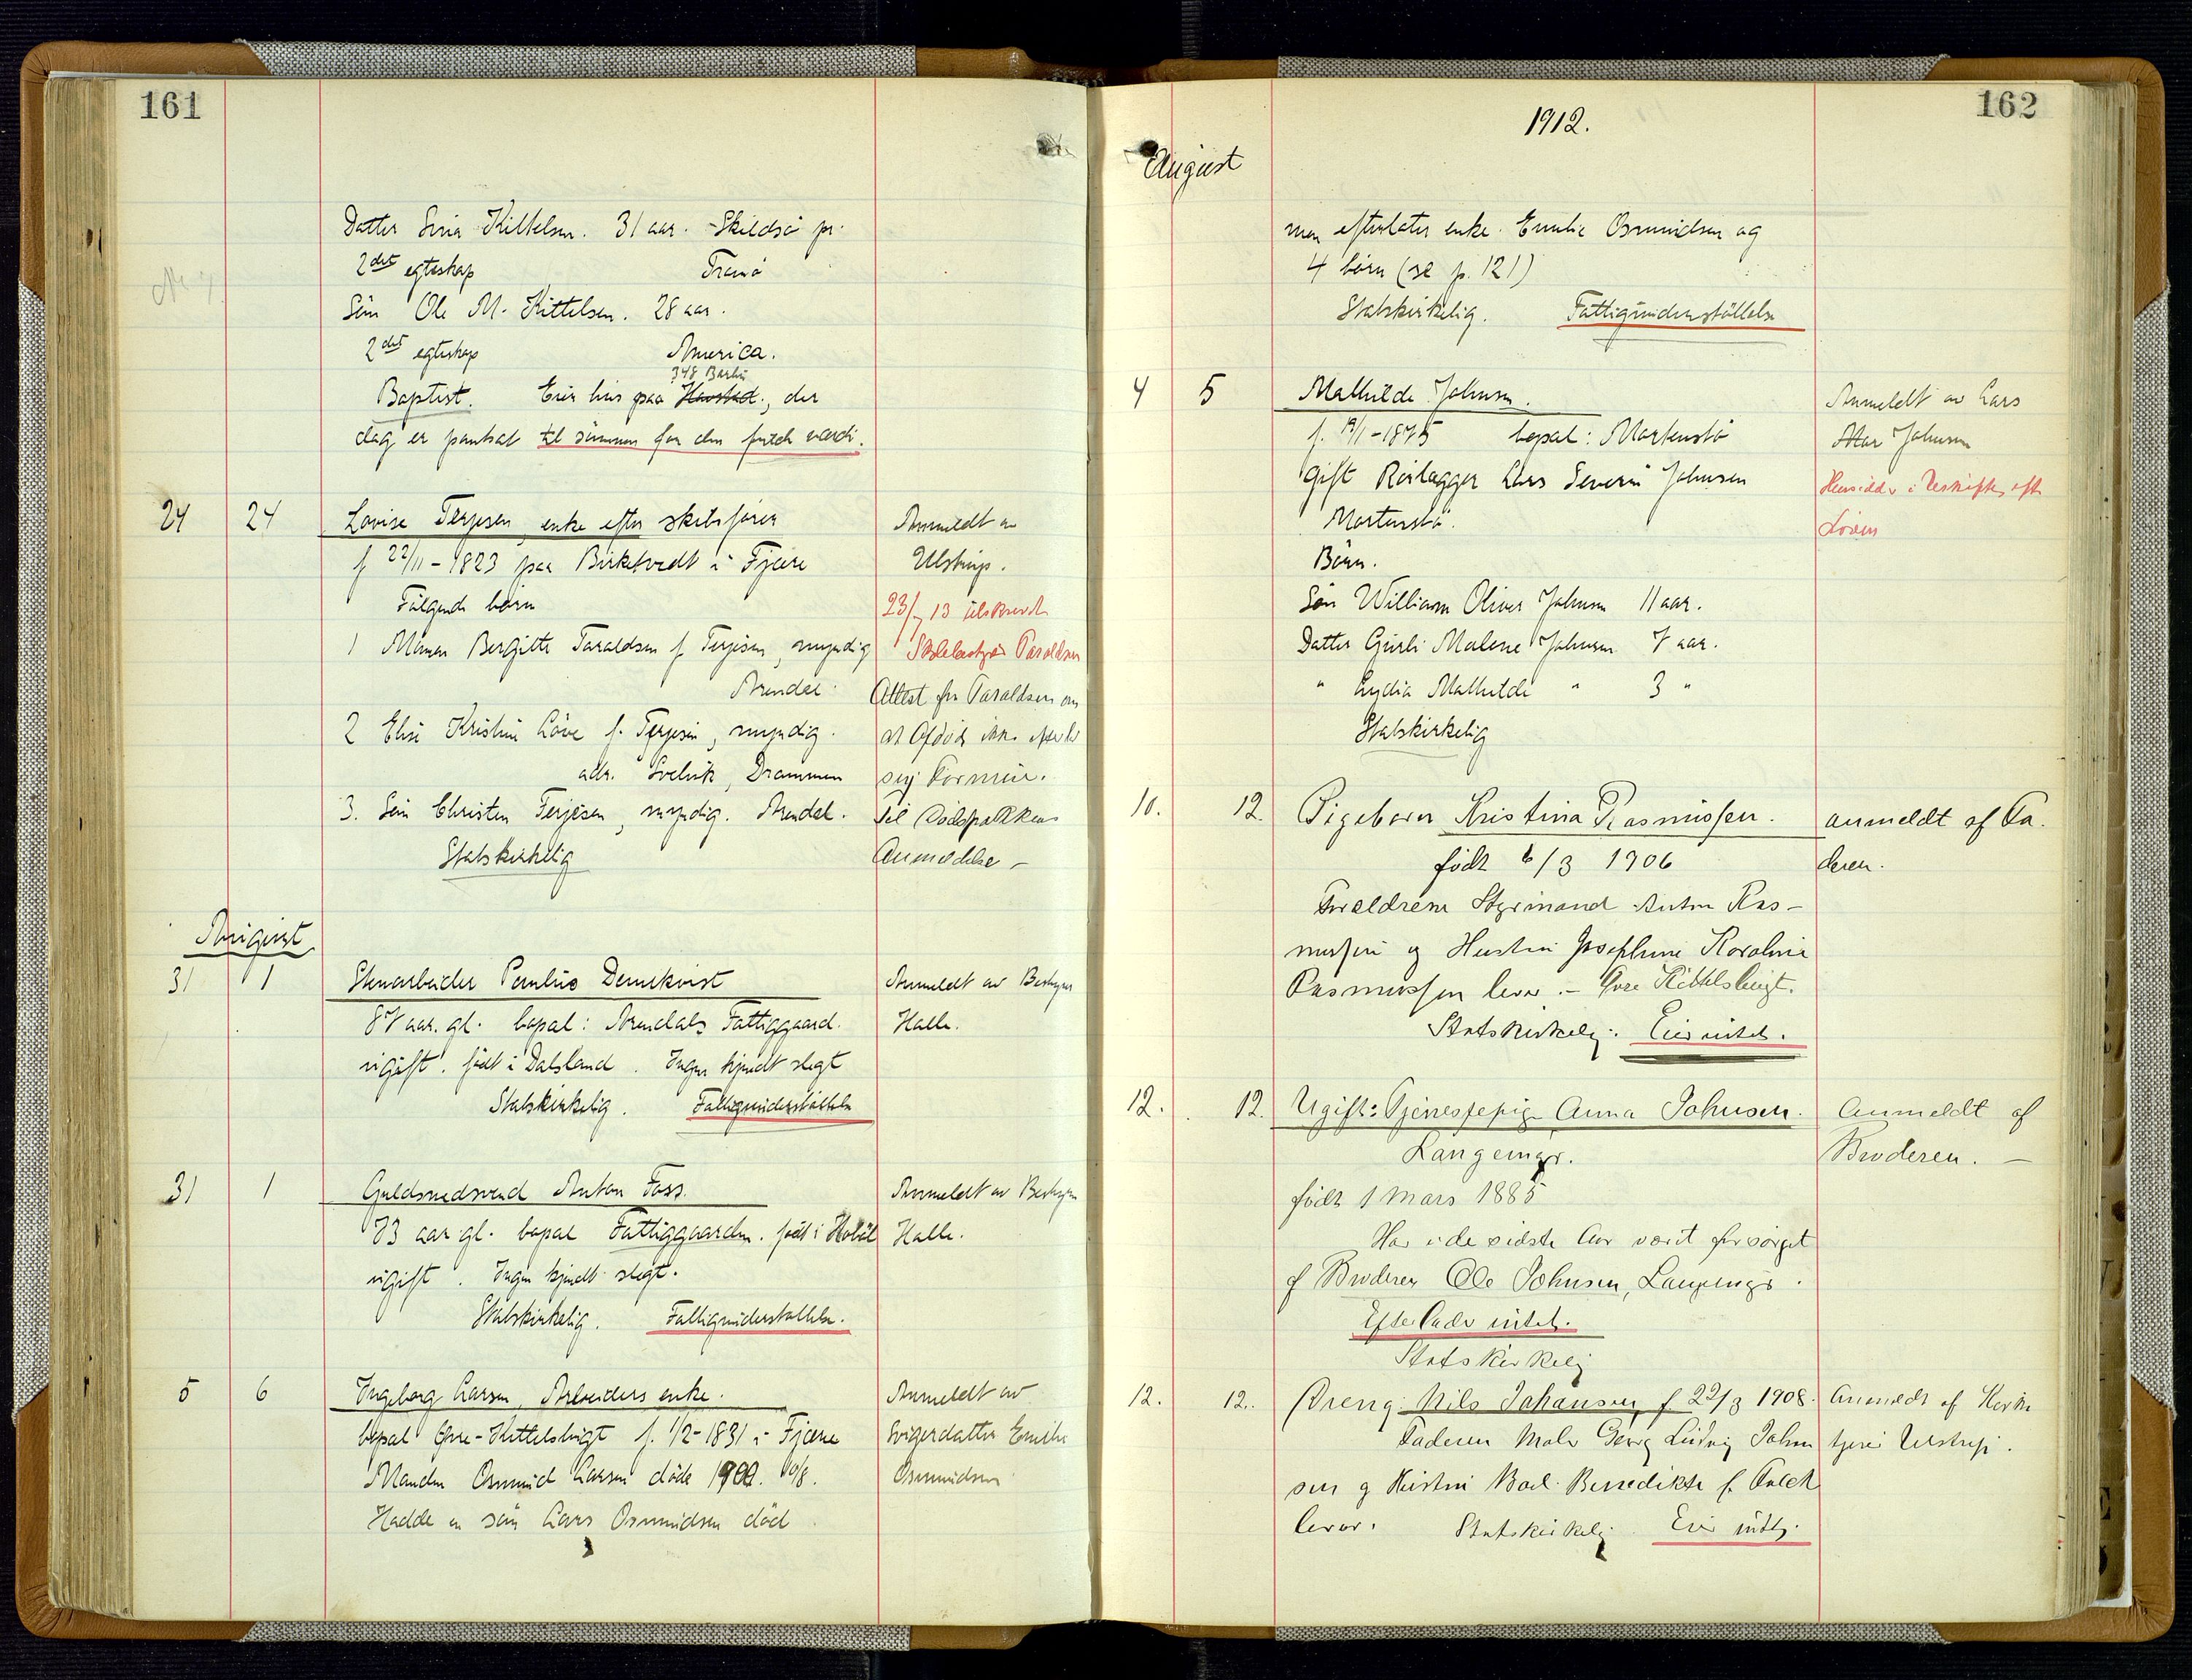 161
Datter Sina Kittelsen. 31 aar. Skildsö pr.
2det egteskap Tromö
Sön Ole M. Kittelsen. 28 aar.
2det egteskap America.
348 Barbu
Baptist. Eier hus paa Havstad., der
dog er pantsat til summen for den fulde værdi.
24 24 Lovise Terjesen, enke efter skibsfører
f 22/11-1823 paa Birketvedt i Fjære
Følgende børn
1 Maren Bergitte Taraldsen f. Terjesen, myndig
Arendal.
2 Elise Kristine Löve f. Terjesen, myndig.
adr. Svelvik, Drammen
3. Sön Christen Terjesen, myndig. Arendal.
Statskirkelig
Anmeldt av
Ulstrup.
23/7 13 utskrevet
Taraldsen
Attest fra Taraldsen om
at Afdöde ikke efterlod
sig Formue.
Til Dödspakken
Anmeldelse –
August
31 1 Stenarbeider Paulus Dernkvist
87 aar. gl. bopæl: Arendals Fattiggaard.
ugift. født i Dalsland. Ingen kjendt slegt
Statskirkelig. Fattigunderstöttelse
Anmeldt av Bestyrer
Halle.
31 1 Guldsmedsvend Anton Foss.
73 aar gl. bopæl Fattiggaarden. født i Hobøl
ugift. Ingen kjendt slegt.
Statskirkelig. Fattigunderstøttelse.
Anmeldt av Bestyrer
Halle.
5 6 Ingeborg Larsen, Arbeiders enke.
bopæl Øvre-Kittelsbugt f. 1/2-1831 i Fjære
Manden Osmund Larsen døde 1900. 10/8.
Hadde en søn Lars Osmundsen død
Anmeldt av
Svigerdatter Emilie
Osmundsen
162
1912.
August
men efterlater enke. Emilie Osmundsen og
4 børn (se p. 121)
Statskirkelig. Fattigunderstöttelse
4 5 Mathilde Johnsen.
f. 19/1-1875 bopæl: Martenstø
Gift Rørlægger Lars Severin Johnsen
Martenstø.
Børn.
Søn William Oliver Johnsen 11 aar.
Datter Gurli Malene Johnsen 7 aar.
" Lydia Mathilde " 3 "
Statskirkelig
Anmeldt av Lars
Johnsen
Hensidder i Uskifte eft
Loven
10. 12. Pigebarn Kristina Rasmussen.
født 6/3 1906
Forældrene Styrmand Anton Ras-
mussen og Hustru Josephine Karoline
Rasmussen lever. – Øvre Kittelsbugt.
Statskirkelig. Eier intet.
anmeldt af Fa-
deren.
12. 12. Ugift: Tjenestepige Anna Johnsen.
Langemyr.
født 1 Mars 1885
Har i de sidste Aar været forsörget
af Broderen Ole Johnsen, Langemyr.
Efterlader intet.
Statskirkelig
Anmeldt af
Broderen. –
12. 12. Dreng. Nils Johansen f. 22/3 1908.
Faderen Maler Georg Ludvig Johan
sen og Hustru Benedikte f. Falck
lever. Statskirkelig. Eier intet.
Anmeldt af Kirke
tjener Ulstrup.